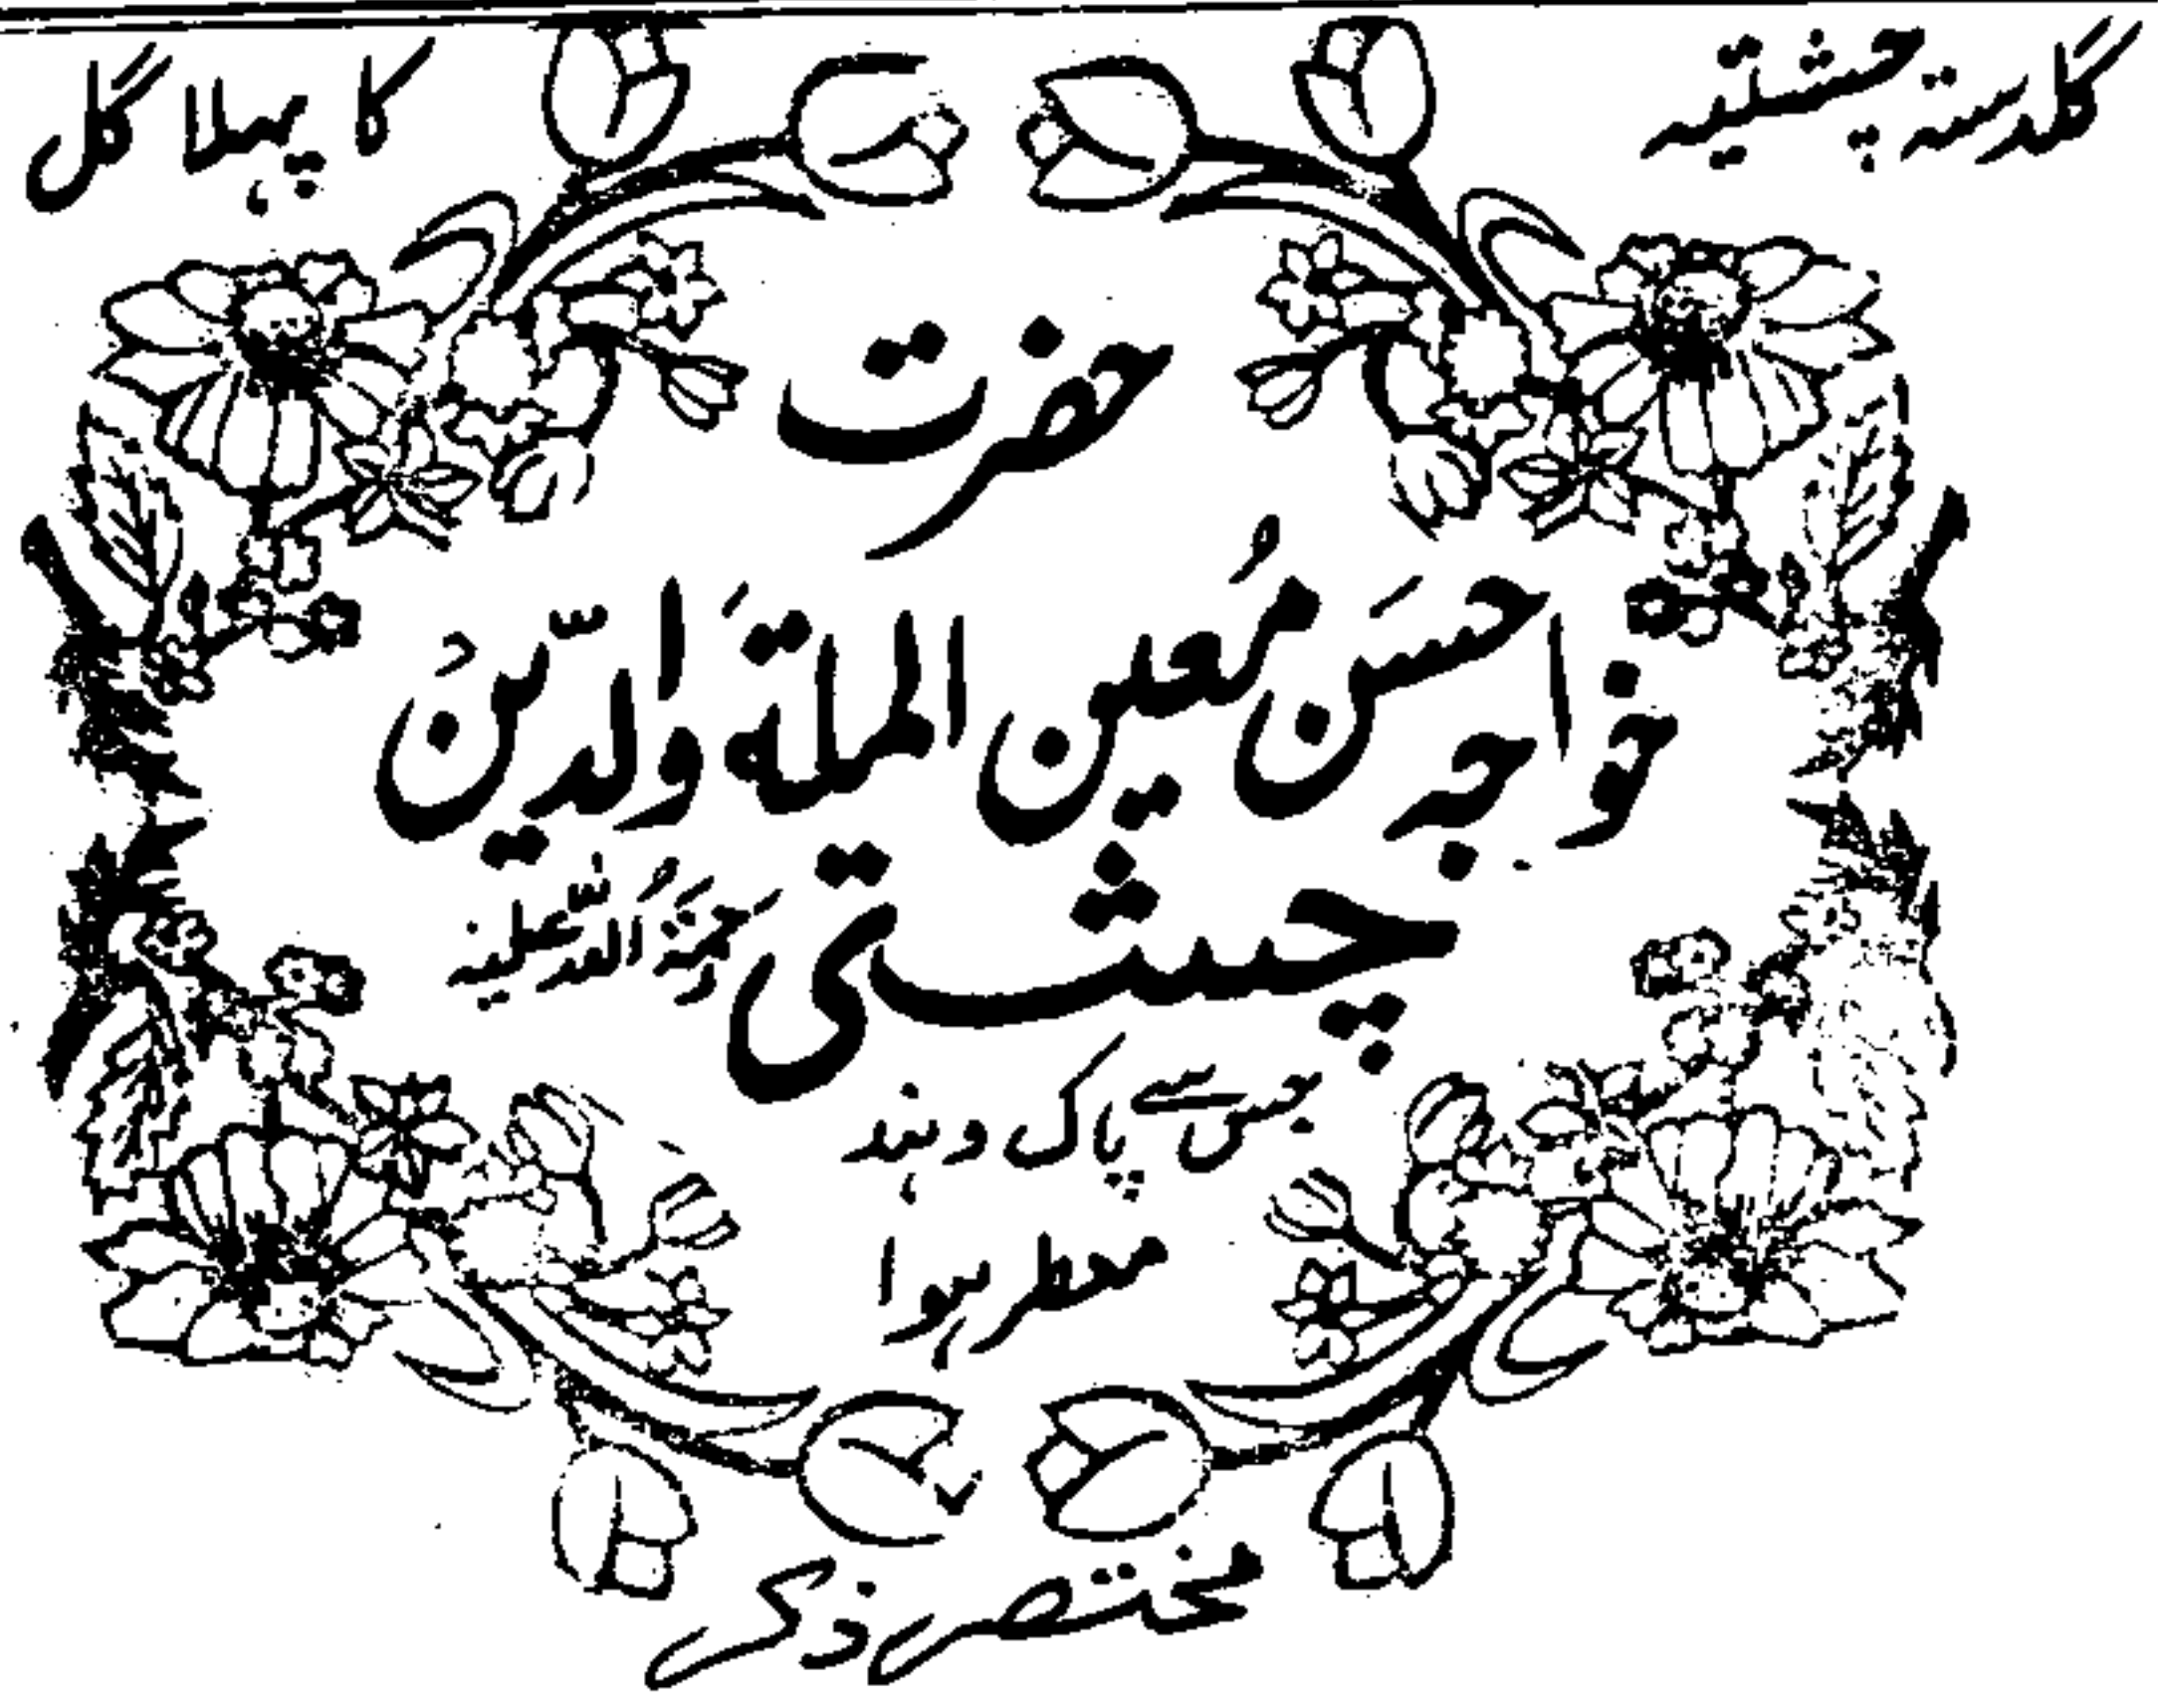 گلدستہ چشتیہ کا پہلا گل
حضرت
خواجہ حسَن مُعین الملۃَ والدّینُ
چشتی رحمۃُ اللہ علیہ
جس سے پاک و ہند
معطر ہوا
مختصر ذکر